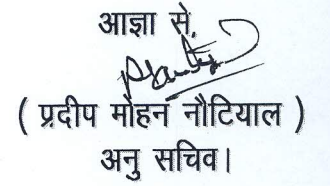 आज्ञा से,
( प्रदीप मोहन नौटियाल )
अनु सचिव।